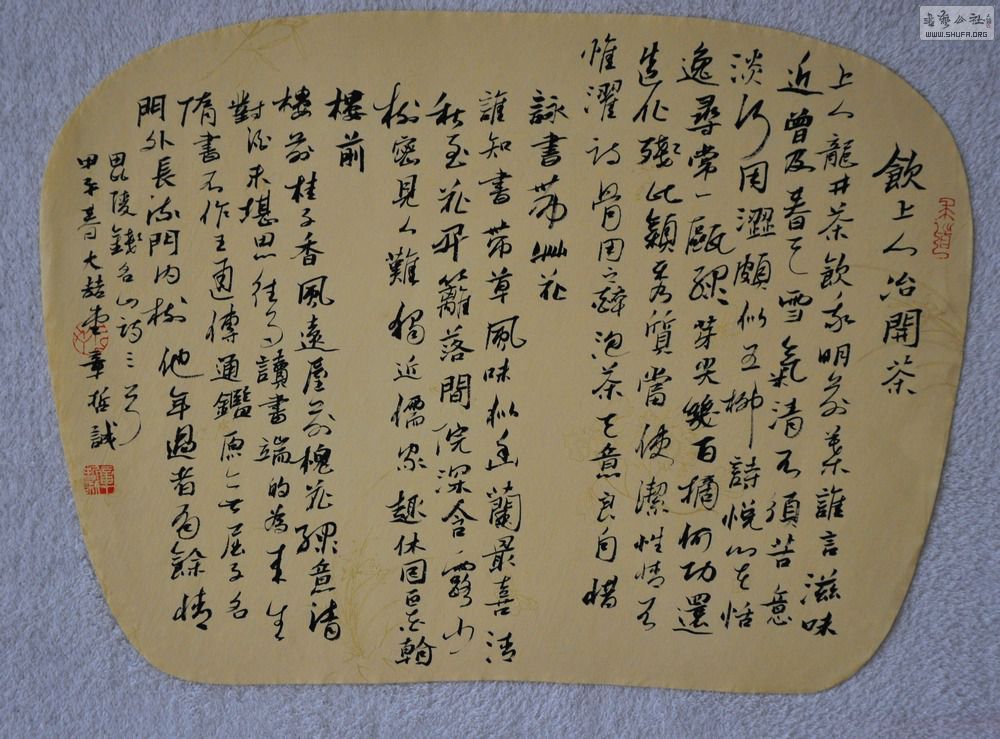 飲上人冶開茶
上人龍井茶飲我明前葉誰言滋味
近曾及春已雪氣清不須苦意
淡行用澀頗似五柳詩悅心在恬
逸尋常一甌綠芽與幾百摘何功還
造化殘此穎秀質當使潔性情
惟濯詩骨用之辭泡茶意良自惜
詠書帶艸花
誰知書帶草風味似幽蘭最喜清
秋至花開籬落間院深含露小
樹密見人難獨近儒家趣休因忘翰
樓前
樓前桂子香風遠屋前槐花綠意清
對酒未堪思往事讀書端的為來生
隋書不作王通傳通鑑原無屈子名
門外長流門內樹他年過者為餘情
毘陵錢名山詩三首
甲午 大喆堂 章哲誠
WWW.SHUFA.ORG